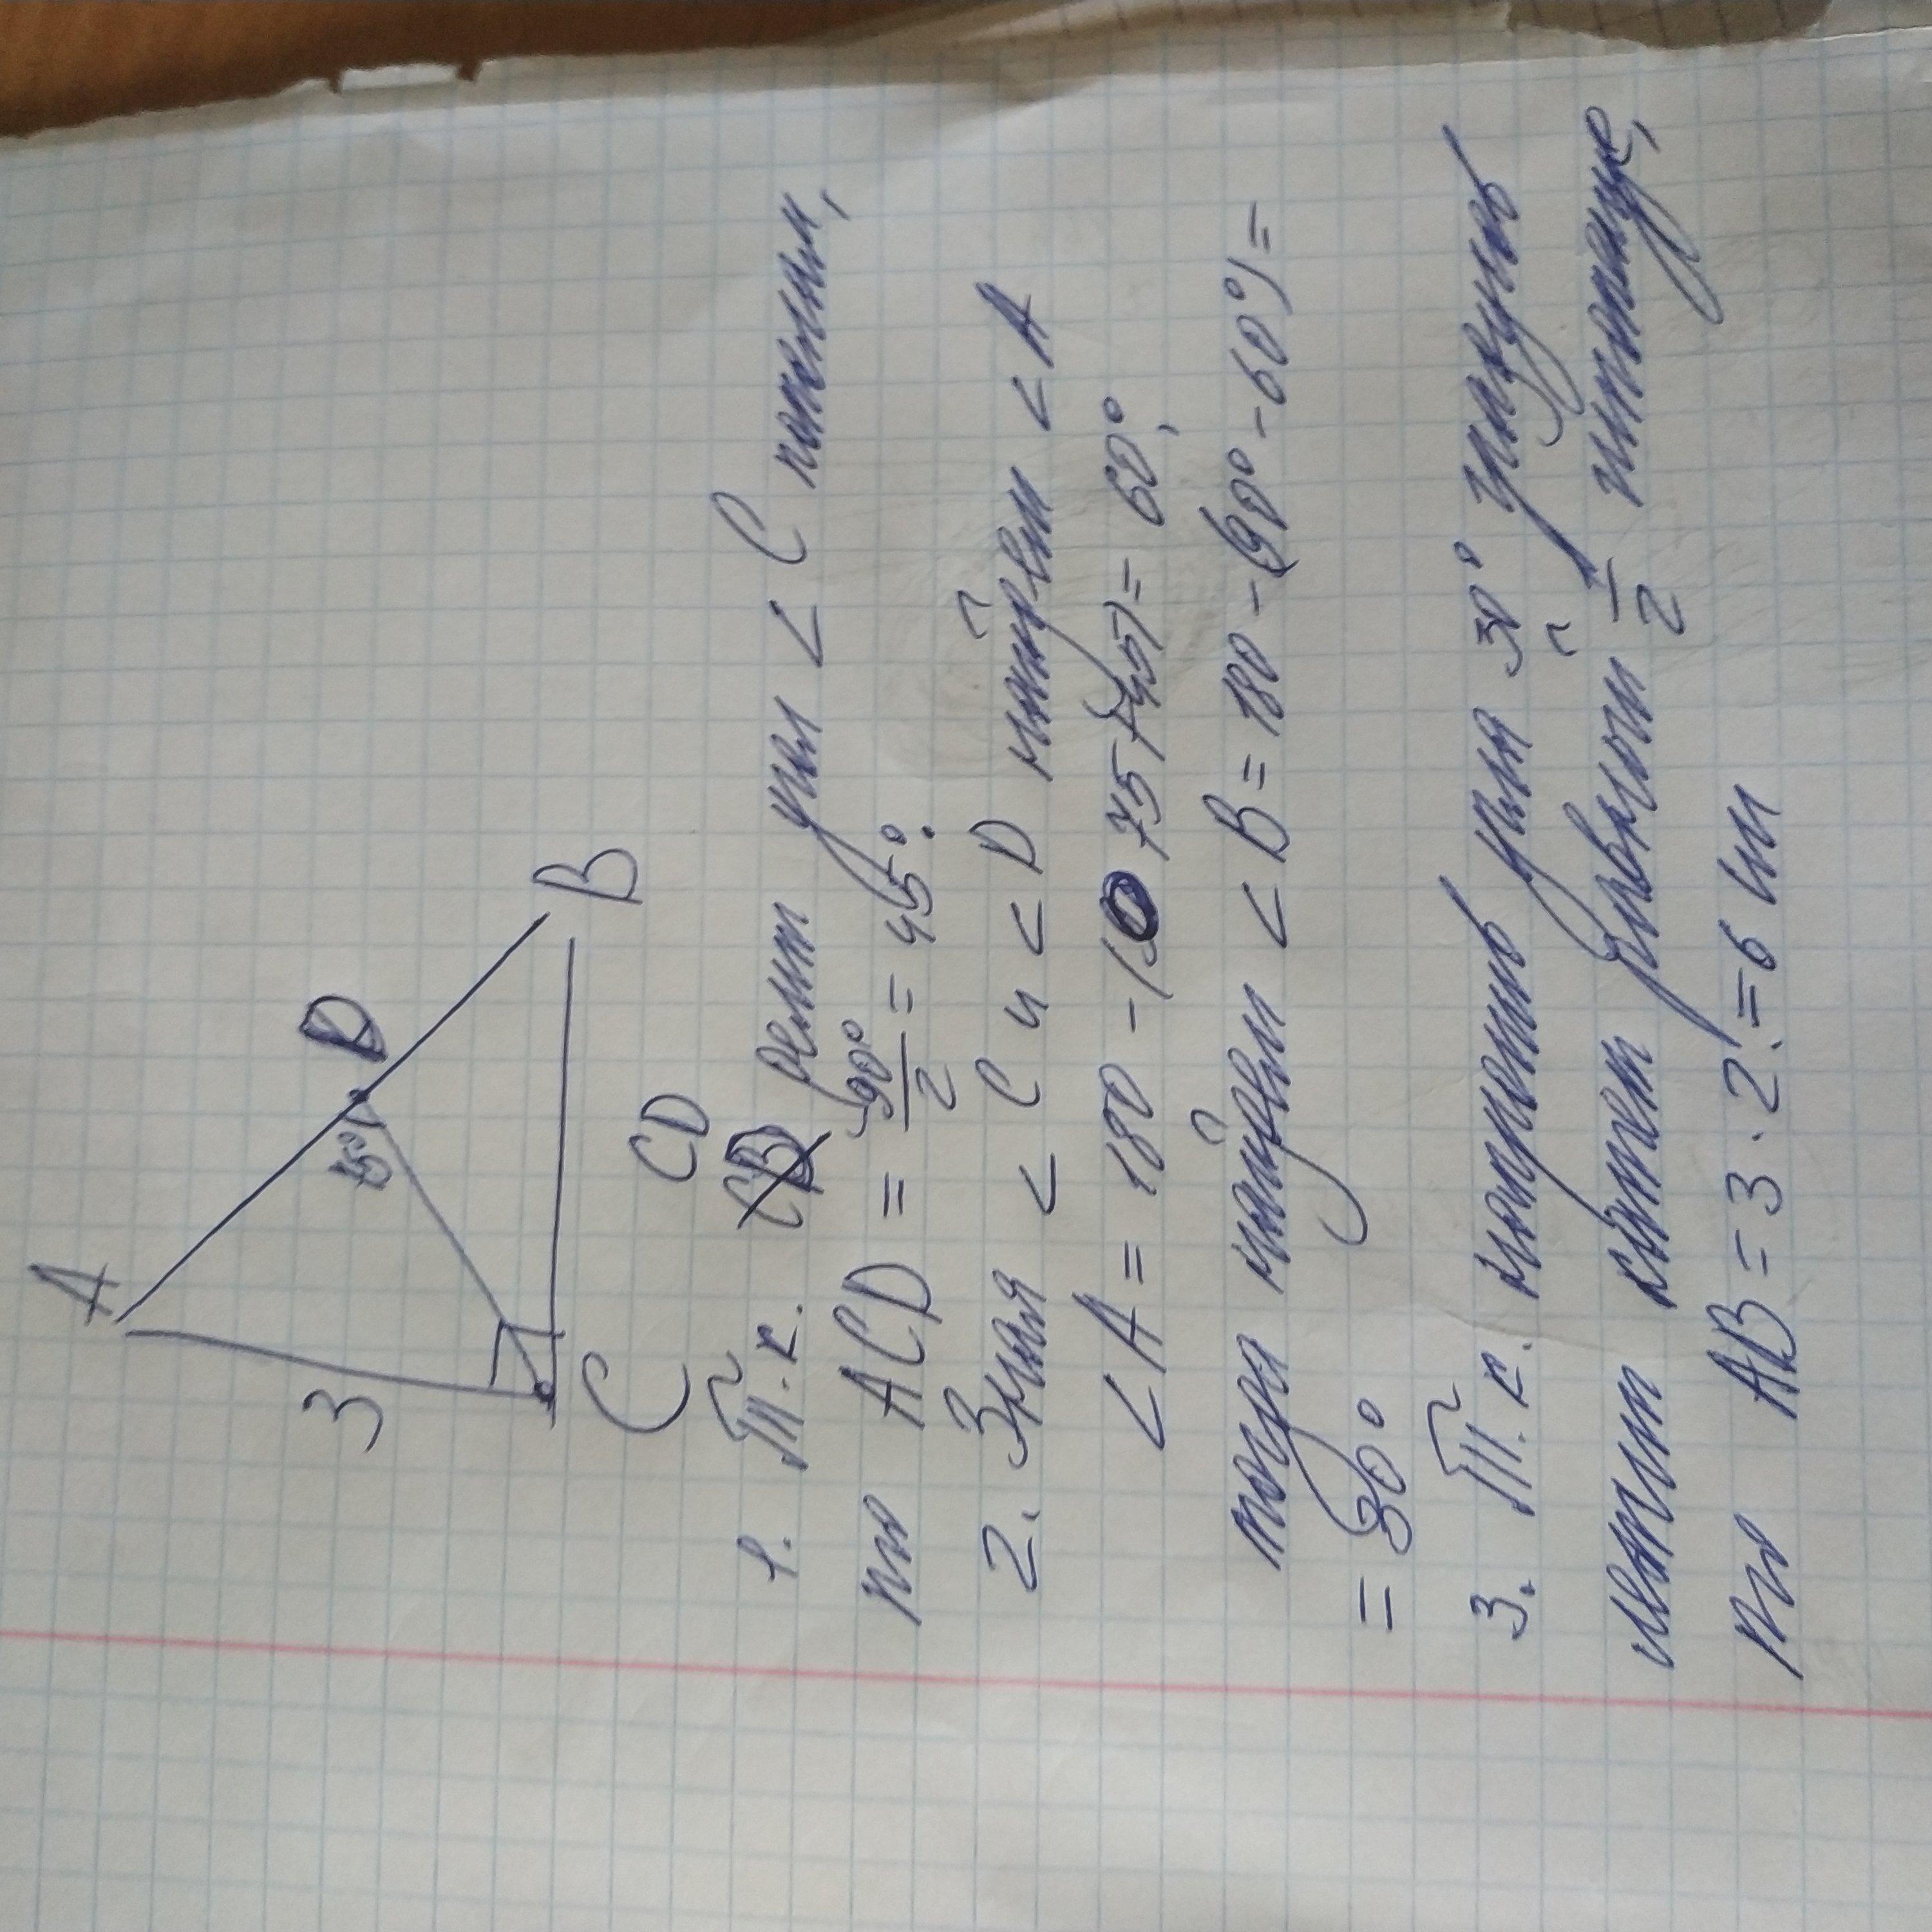 A
D
75°
3
B
C
CD
1. Т.к. CB делит угол < C пополам,
то ACD = 90°/2 = 45°.
2. Зная < C и < D найдем < A
< A = 180 - ( 75+45) = 60°,
тогда найдем < B = 180 - (90° - 60°) =
= 30°
3. Т.к. напротив угла 30° градусов
лежит катет равный 1/2 гипотенузе,
то AB = 3 · 2 = 6 см